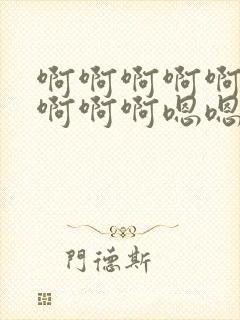 啊啊啊啊啊
啊啊啊嗯嗯
門德斯